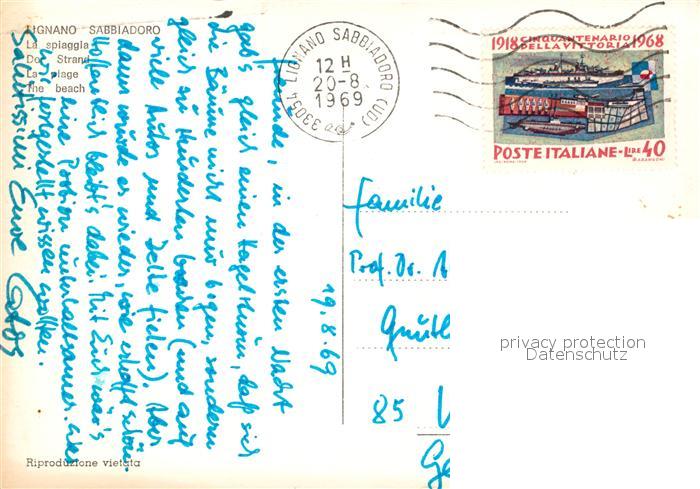 LIGNANO SABBIADORO
La spiaggia
Der Strand
La plage
The beach
33054 LIGNANO SABBIADORO (UD)
12 H
20-8
1969
1918 CINQUANTENARIO DELLA VITTORIA 1968
POSTE ITALIANE-LIRE 40
19.8.69
Freunde, in der ersten Nacht
gab's gleich einen Hagelsturm, daß sich
die Bäume nicht nur bogen, sondern
gleich zu Hunderten brachen (und auf
viele Autos und Zelte fielen). Aber
dann wurde es wieder, wie erhofft schön.
Hoffentlich bleibt's dabei. Mit Euch wär's
eine Portion unterhaltsamer.
wir vorgestellt wissen wollten.
Salutissimi Eure
Familie
Prof. Dr.
85
privacy protection
Datenschutz
Riproduzione vietata